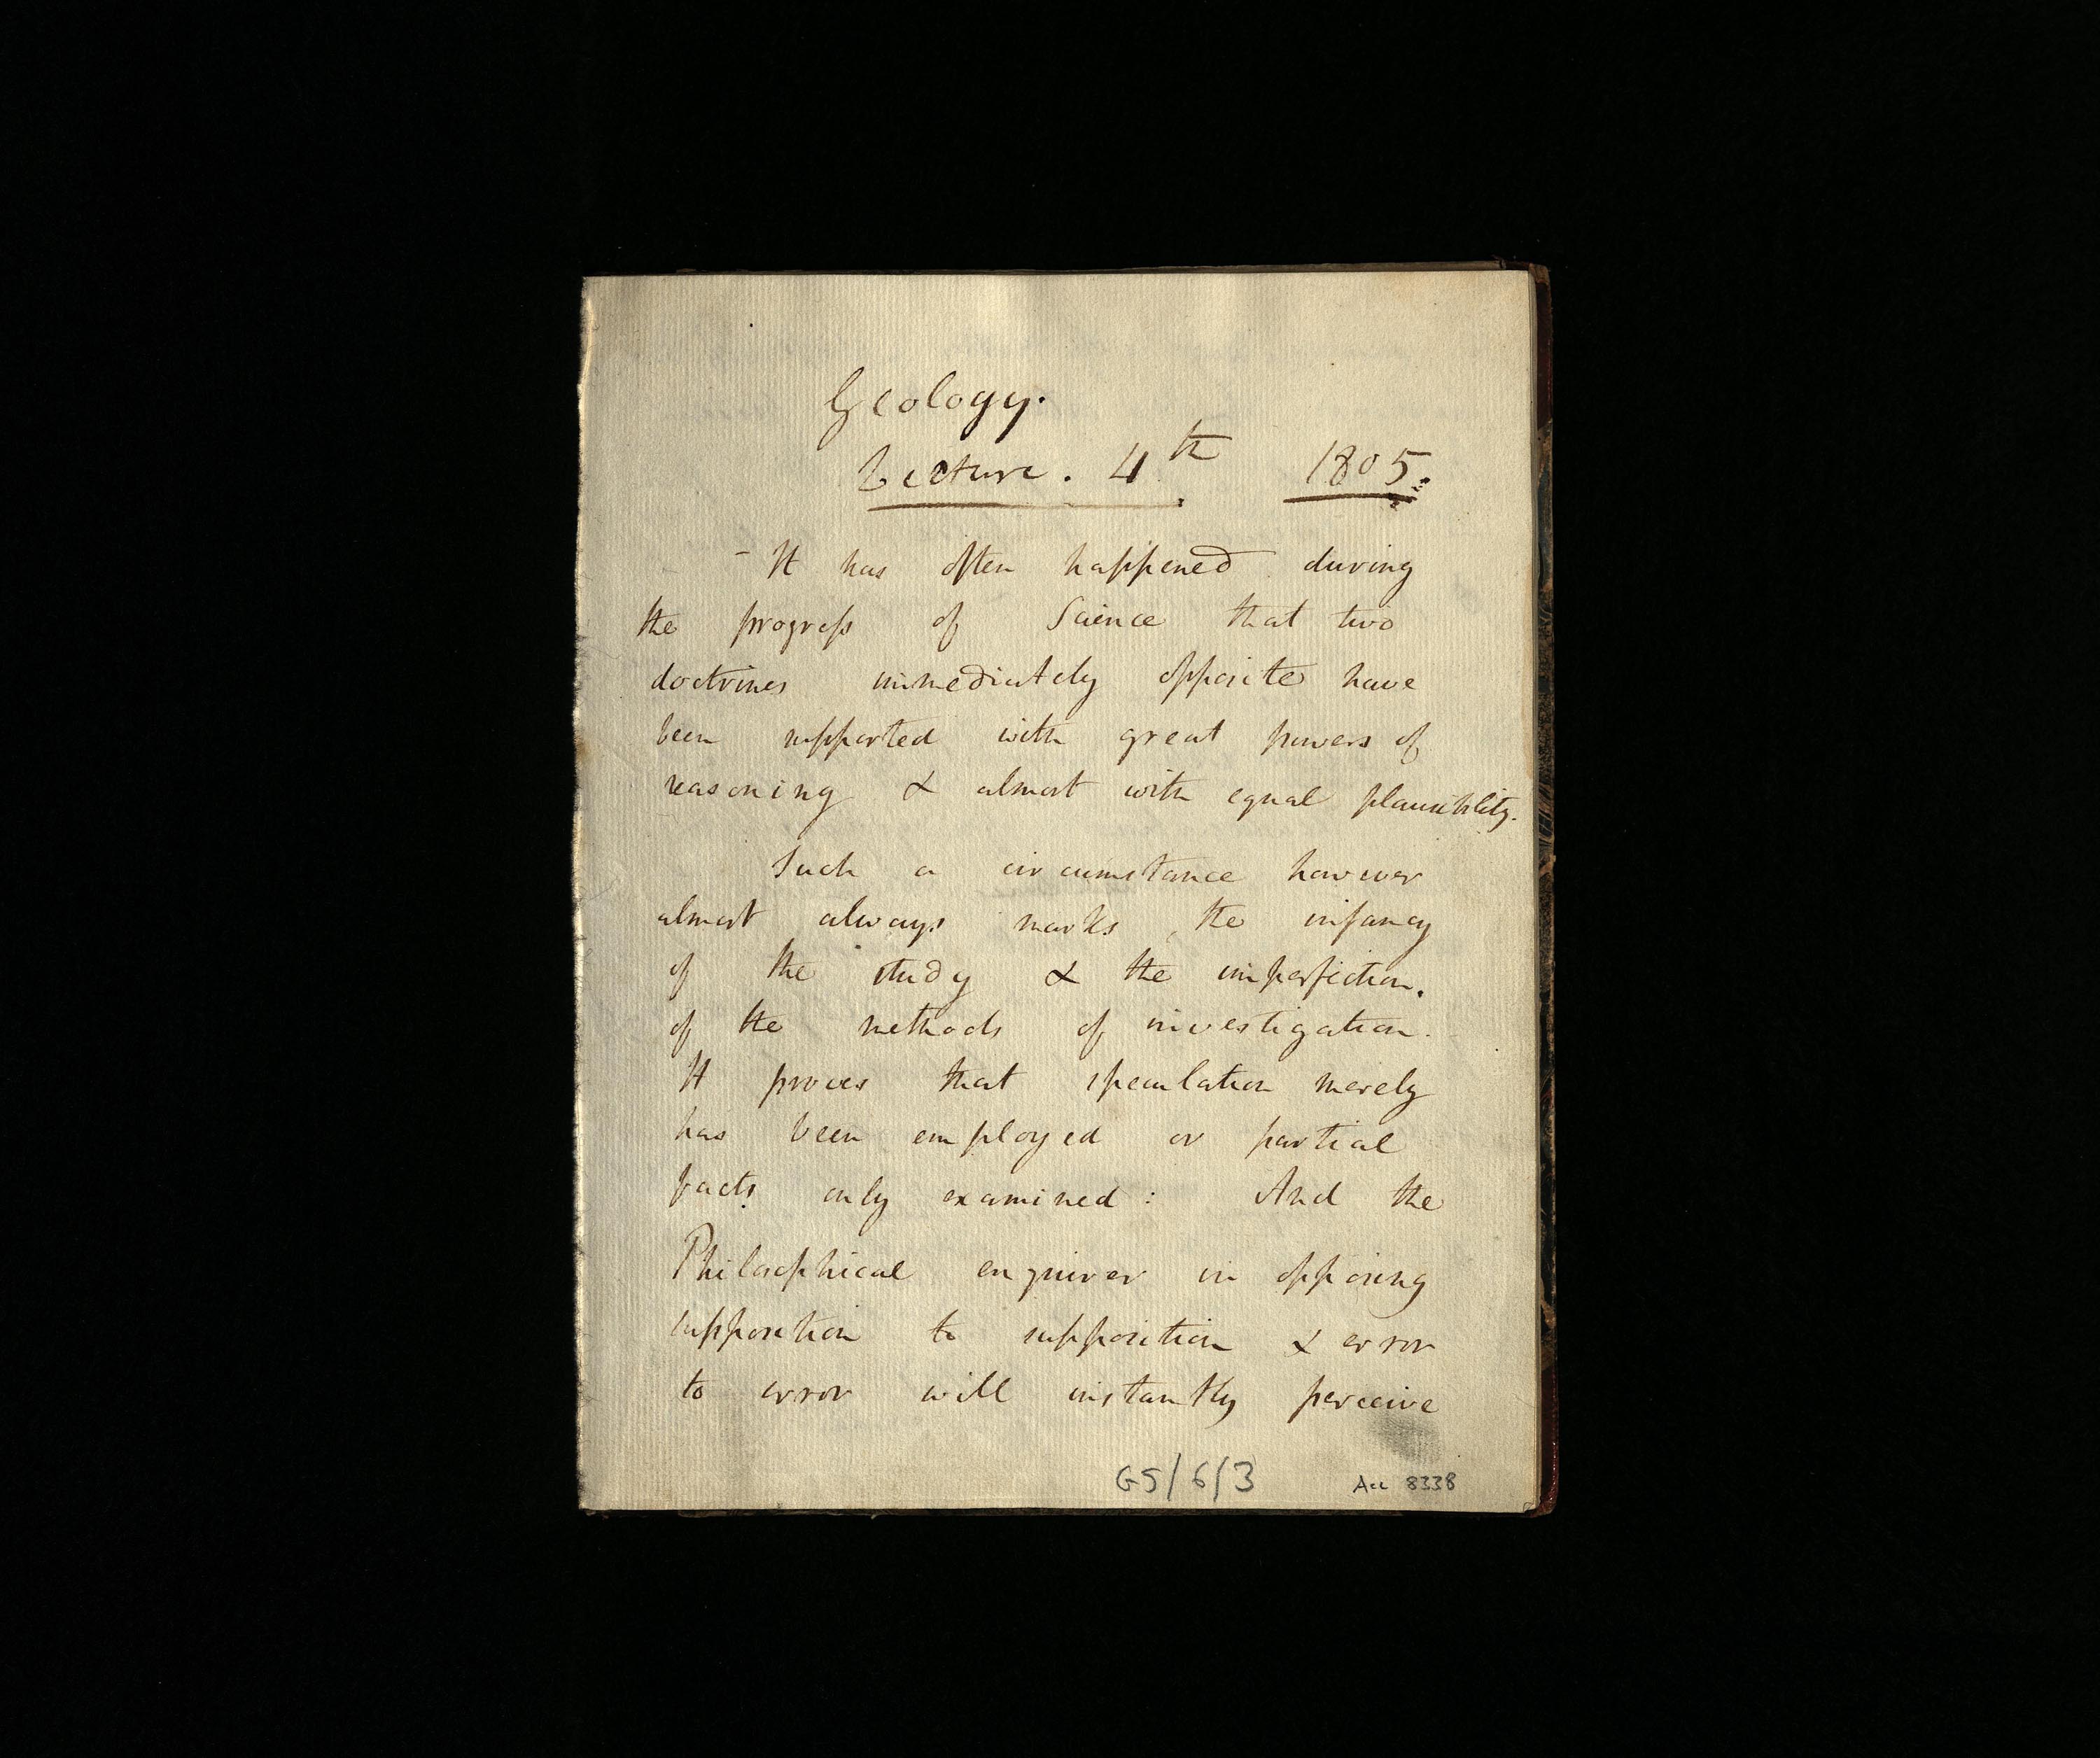 Geology.
Lecture. 4th 1805.
- It has often happened during
the progress of Science that two
doctrines immediately opposite have
been supported with great powers of
reasoning & almost with equal plausibility.
Such a circumstance however
almost always marks the infancy
of the study & the imperfection.
of the methods of investigation.
It proves that speculation merely
has been employed or partial
facts only examined: And the
Philosophical enquirer in opposing
supposition to supposition & error
to error will instantly perceive
GS/6/3 Acc 8338